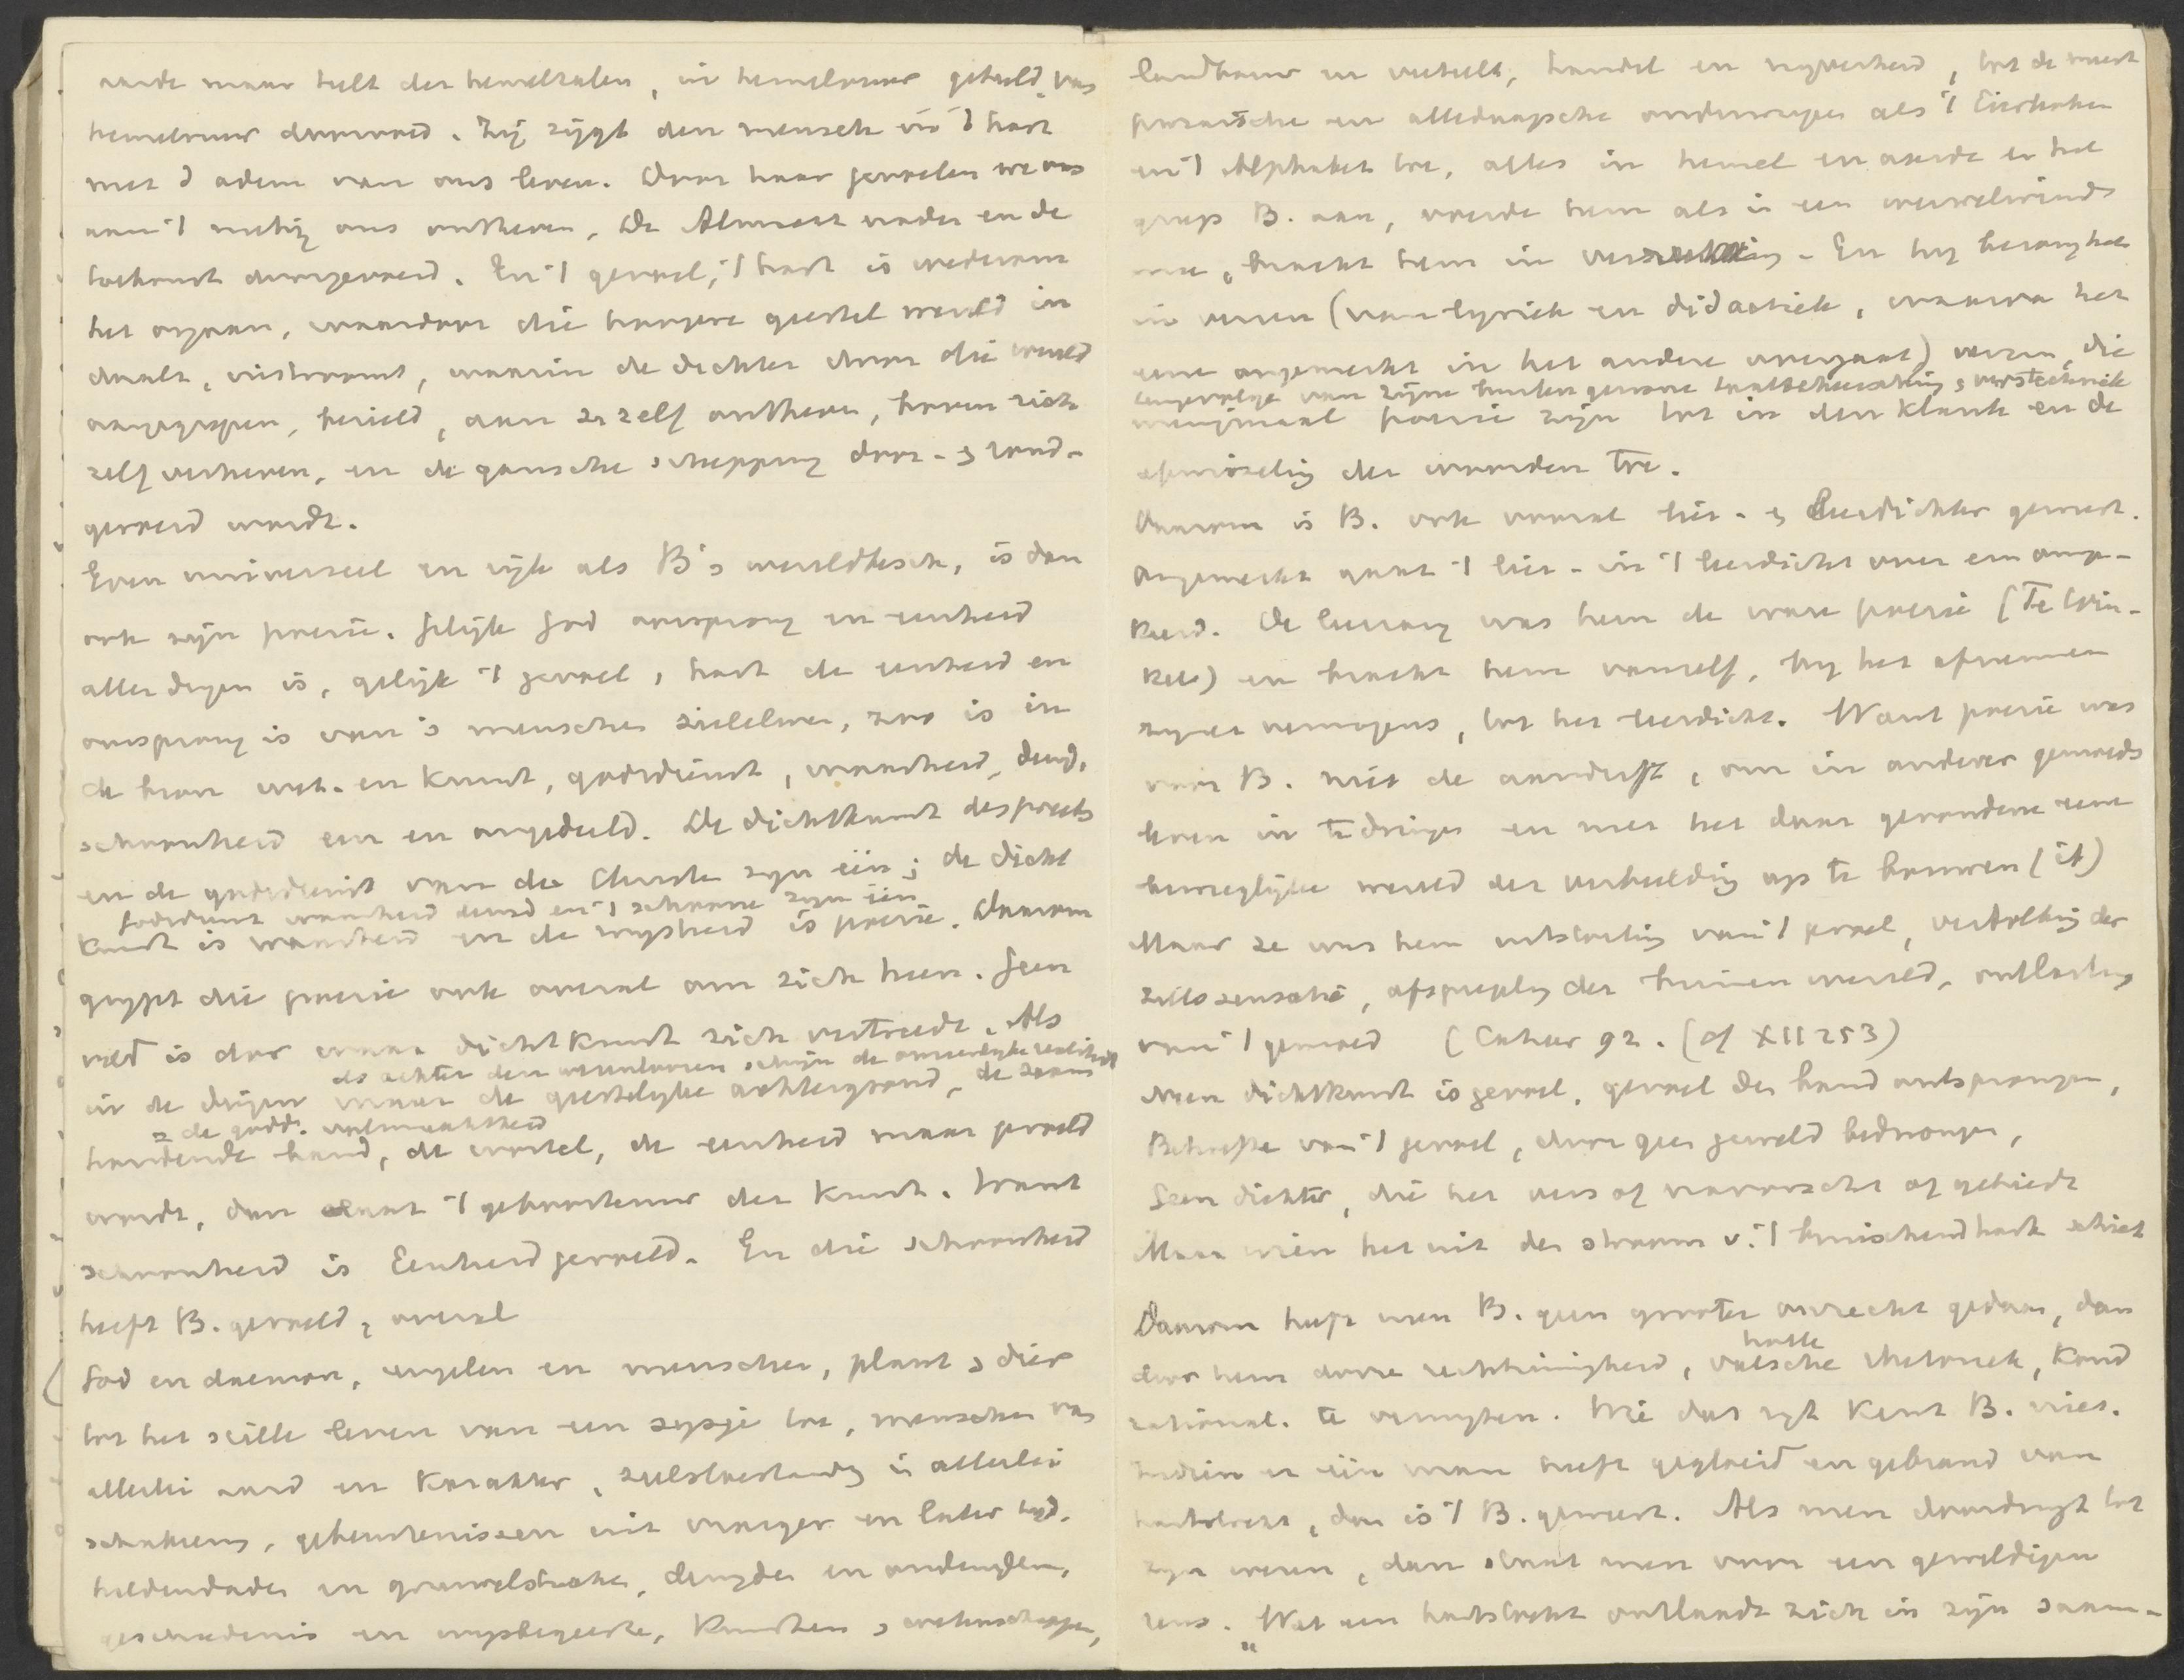 aarde maar telt der hemeltalen, in hemelvuur gehuld, van
hemelvuur doorvoed. Zij zijgt den mensch in 't hart
met d adem van ons leven. Door haar gevoelen we ons
aan 't nietig ons ontheven, De Almacht nader en de
toekomst doorgevoerd. En 't gevoel, 't hart is wederom
het orgaan, waardoor die hoogere geestel wereld in
daalt, instroomt, waarin de dichter door die wereld
aangegrepen, bezield, aan zn zelf ontheven, boven zich
zelf verheven, en de gansche schepping door- en rond-
gevoerd wordt.
Even universeel en rijk als B's wereldbesch. is dan
ook zijn poezie. Gelijk God oorsprong en eenheid
aller dingen is, gelijk 't gevoel, hart de eenheid en
oorsprong is van 's menschen zieleleven, zoo is in
de bron wet. en kunst, godsdienst, waarheid, deugd,
schoonheid een en ongedeeld. De dichtkunst des poeets
en de godsdienst van den Christen zijn één; de dicht
Godsdienst waarheid deugd en 't schoone zijn één
kunst is waarheid en de wijsheid is poezie. Daarom
grijpt die poezie ook overal om zich heen. Geen
veld is daar waar dichtkunst zich vertreedt. Als
als achter den schijn de realiteit
in de dingen maar de geestelijke achtergrond, de saam
de godd. volmaaktheid
houdende band, de wortel, de eenheid maar gevoeld
wordt, dan 't geboorteuur der kunst. Want
schoonheid is Eenheid gevoeld. En die schoonheid
heeft B. gevoeld, overal
God en daemon, engelen en menschen, plant en dier
tot het stille leven van een sijsje toe, menschen van
allerlei aard en karakter, zielstoestandn in allerlei
schakeering, gebeurtenissen uit vroeger en later tijd,
heldendaden en gruwelstukken, deugden en ondeugden,
geschiedenis en wijsbegeerte, kunsten en wetenschappen,
landbouw en veeteelt, handel en nijverheid, tot de meest
prozaische en alledaagsche onderwerpen als 't Eierkoken
en 't Alphabet toe, alles in hemel en aarde en hel
greep B. aan, voerde hem als in een wervelwind
mee, bracht hem in verrukking. En hij bezong het
in verzen (van lyriek en didactiek, waarvan het
eene ongemerkt in het andere overgaat) verzen, die
tengevolge van zijne buitengewone taalbeheersching en verstechniek
menigmaal poezie zijn tot in den klank en de
afwisseling der woorden toe.
Daarom is B. ook vooral lier- en leerdichter geweest.
Ongemerkt gaat 't lier- in 't leerdicht over en omge-
keerd. De lierzang was hem de ware poezie (Te Win-
kel) en bracht hem vanzelf, bij het afnemen
zijner vermogens, tot het leerdicht. Want poezie was
voor B. niet de aandrift, om in anderer gemoeds
leven in te dringen en met het daar gevondene eene
bewegelijke wereld der verbeelding op te bouwen (it)
Maar ze was hem uitstorting van 't gevoel, vertolking der
zielssensatie, afspiegeling der binnenwereld, ontlasting
van 't gemoed (Cahier 92. (cf XII 253)
Neen dichtkunst is gevoel, gevoel den band ontsprongen,
Behoefte van 't gevoel, door geen geweld bedwongen,
Geen dichter, die het vers of navorscht of gebiedt
Maar wien het uit den stroom v. 't bruischend hart schiet
Daarom heeft men B. geen grooter onrecht gedaan, dan
holle
door hem dorre rechtzinnigheid, valsche rhetoriek, koud
rational. te verwijten. Wie dat zegt kent B. niet.
Indien er één man heeft gegloeid en gebrand van
hartstocht, dan is 't B. geweest. Als men doordringt tot
zijn wezen, dan staat men voor een geweldigen
reus. "Wat een hartstocht ontlaadt zich in zijn saam-